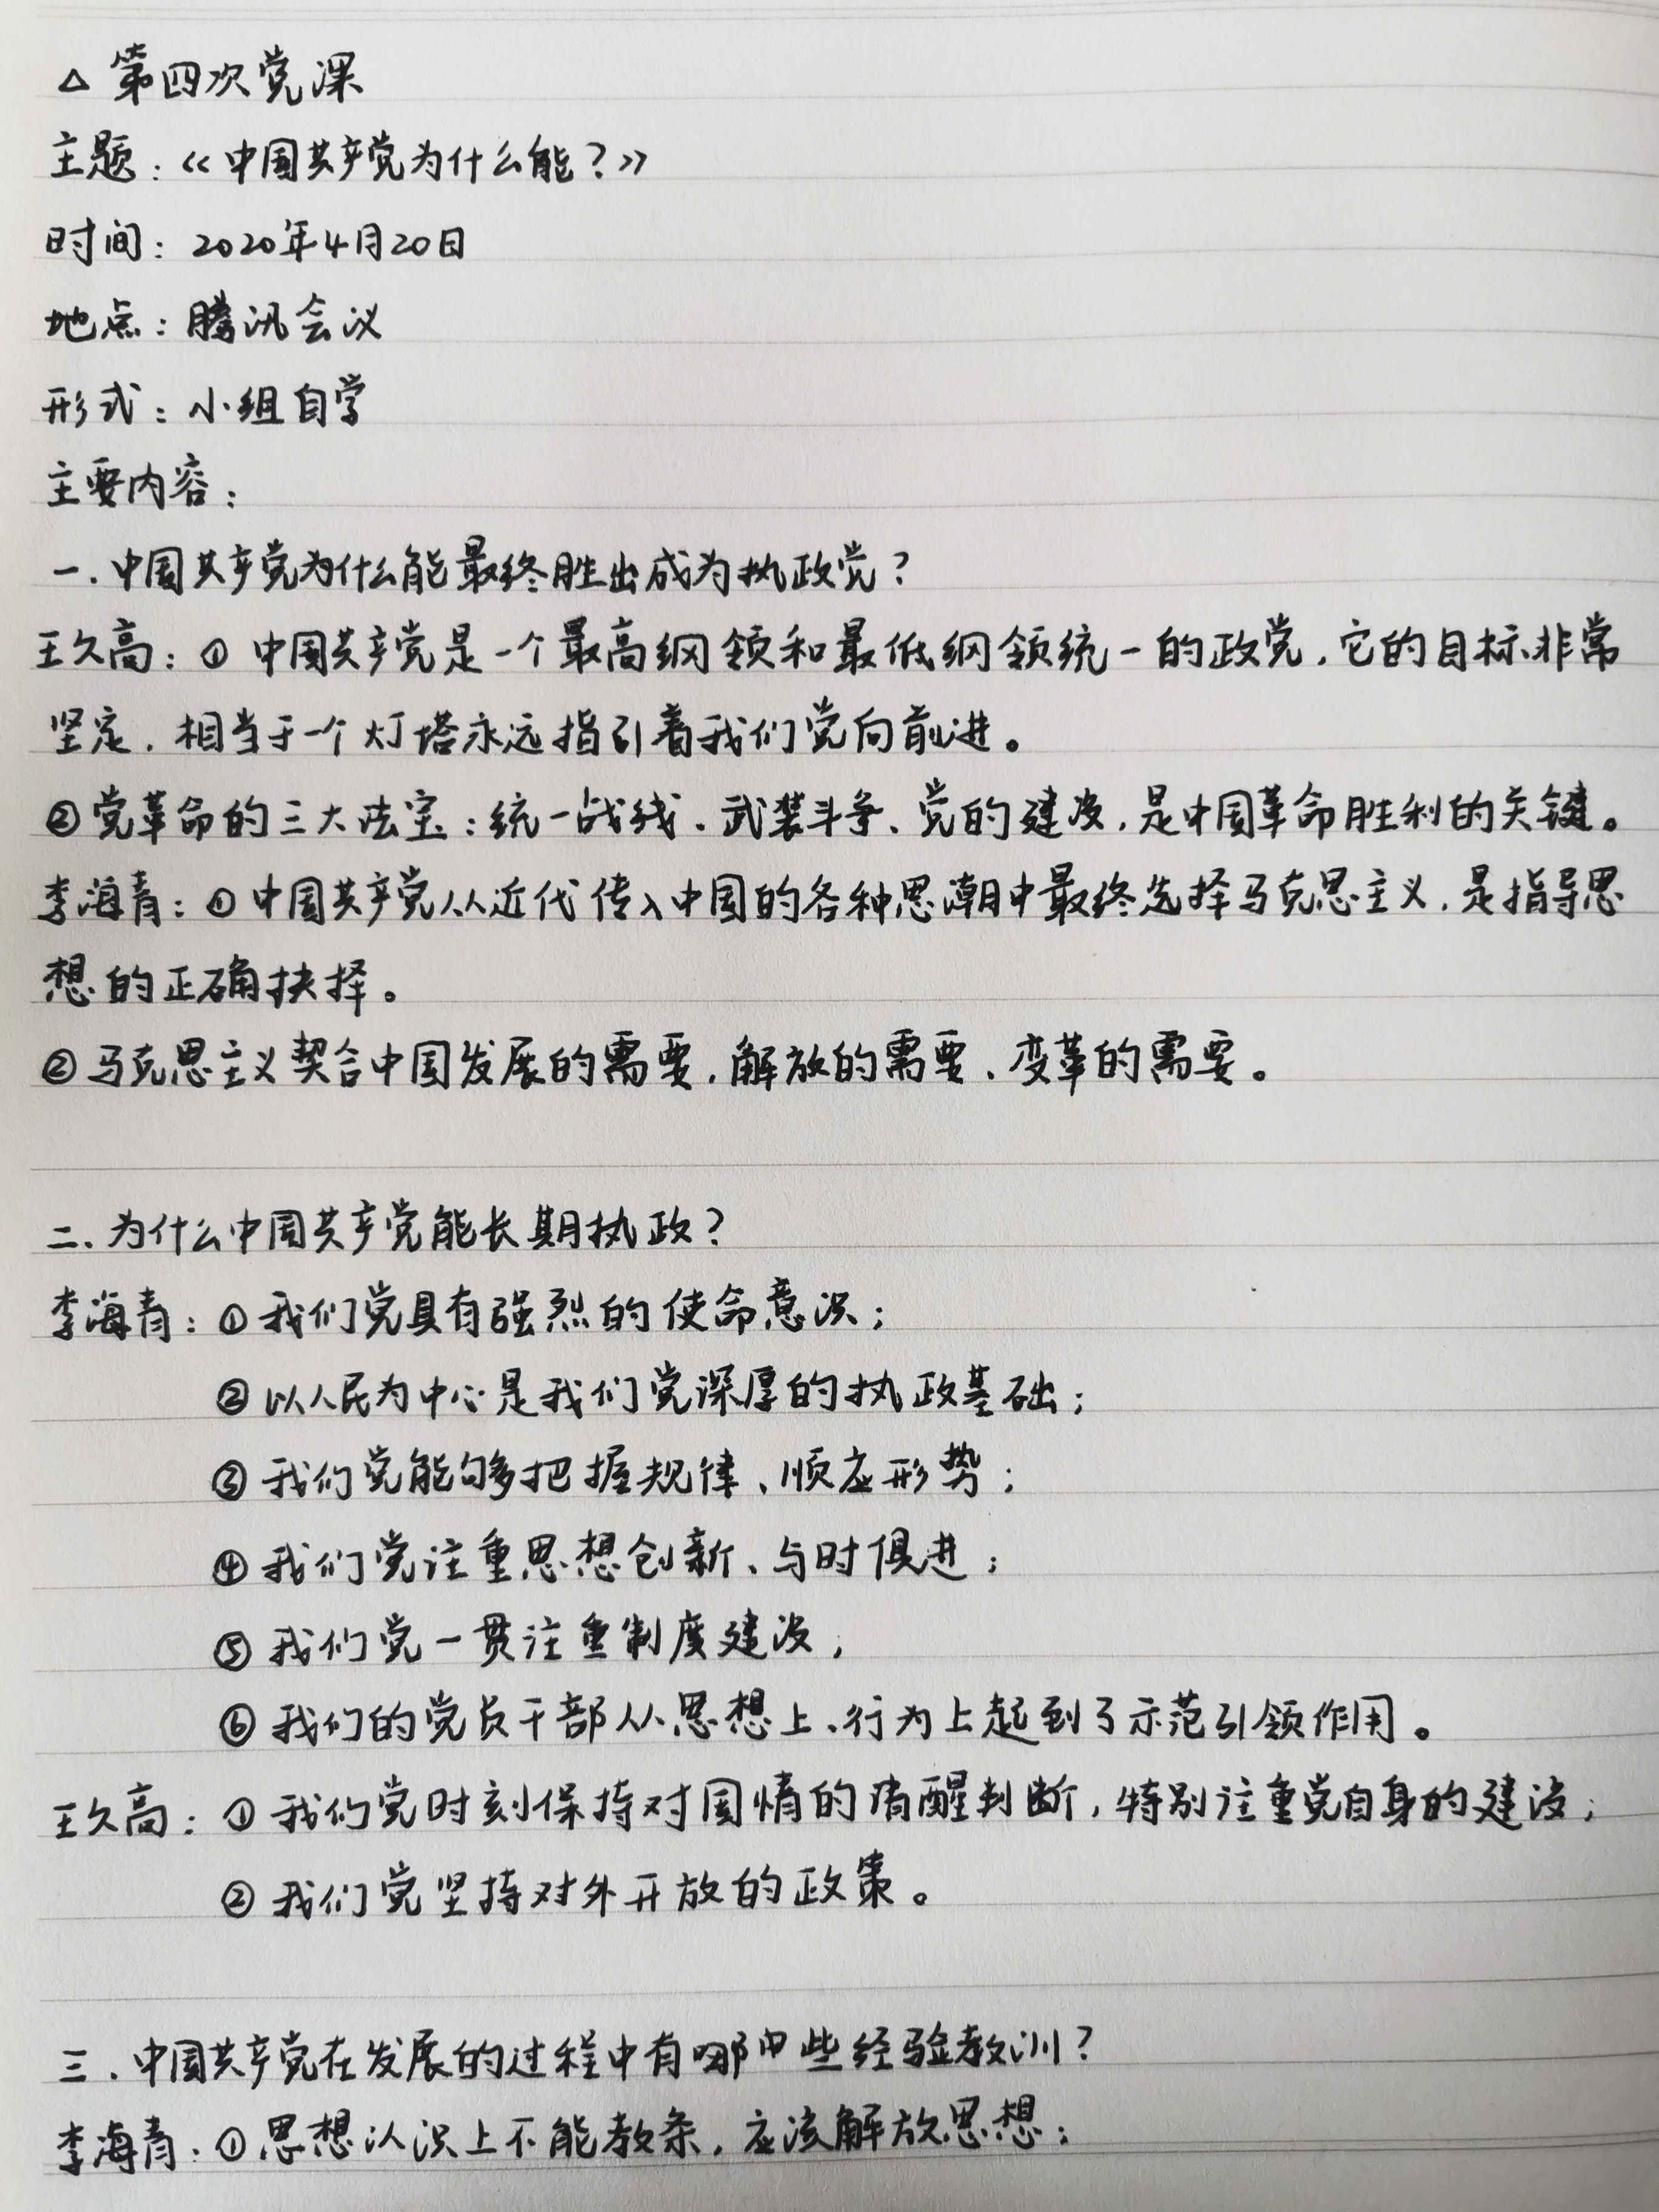 △ 第四次党课
主题：《中国共产党为什么能？》
时间：2020年4月20日
地点：腾讯会议
形式：小组自学
主要内容：
一.中国共产党为什么能最终胜出成为执政党？
王久高：① 中国共产党是一个最高纲领和最低纲领统一的政党，它的目标非常
坚定，相当于一个灯塔永远指引着我们党向前进。
②党革命的三大法宝：统一战线、武装斗争、党的建设，是中国革命胜利的关键。
李海青：①中国共产党从近代传入中国的各种思潮中最终选择马克思主义，是指导思
想的正确抉择。
②马克思主义契合中国发展的需要，解放的需要、变革的需要。
二、为什么中国共产党能长期执政？
李海青：①我们党具有强烈的使命意识；
②以人民为中心是我们党深厚的执政基础；
③我们党能够把握规律、顺应形势；
④我们党注重思想创新、与时俱进；
⑤我们党一贯注重制度建设；
⑥我们的党员干部从思想上、行为上起到了示范引领作用。
王久高：①我们党时刻保持对国情的清醒判断，特别注重党自身的建设；
②我们党坚持对外开放的政策。
三.中国共产党在发展的过程中有哪些经验教训？
李海青：①思想认识上不能教条，应该解放思想；